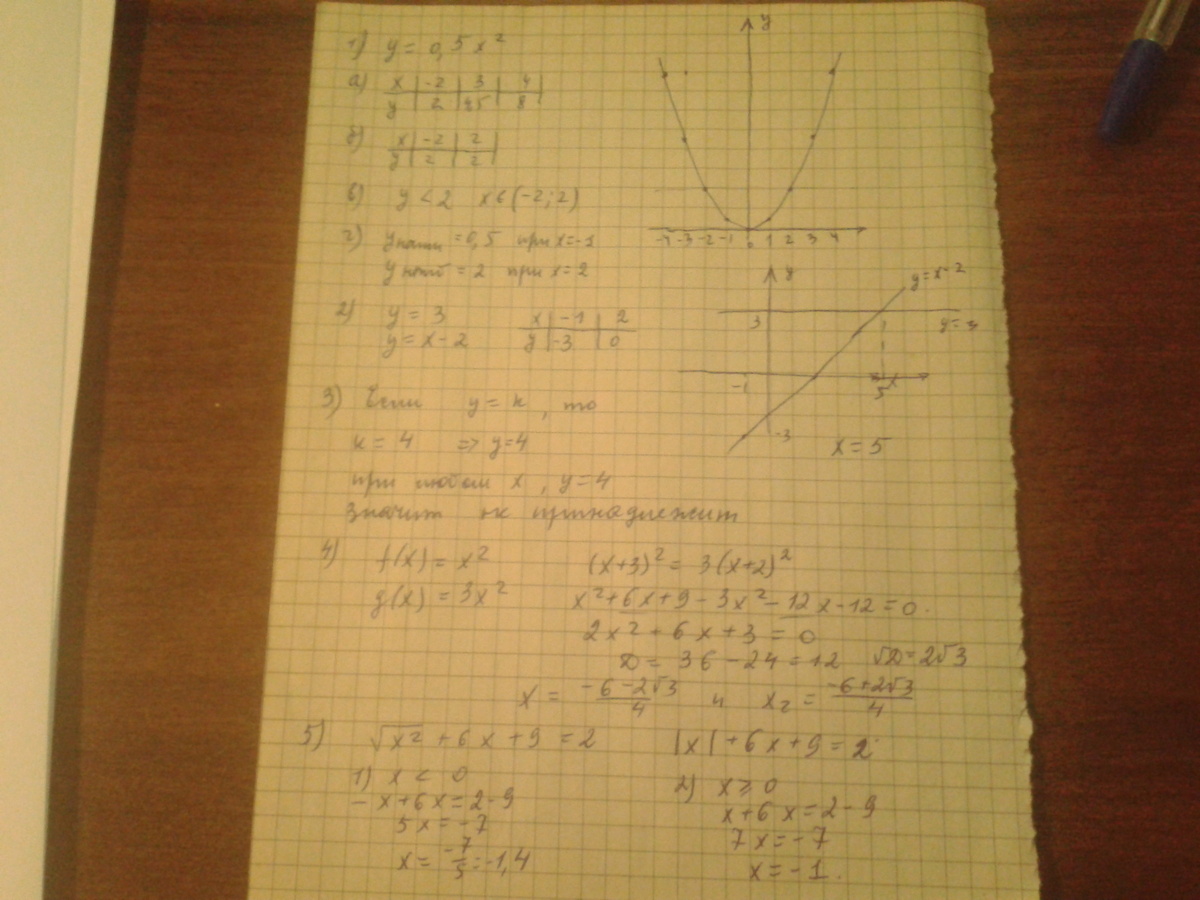 1) y = 0,5x²
а) x | -2 | 3 | 4
y | 2 | 4,5 | 8
б) x | -2 | 2
y | 2 | 2
в) y < 2 x ∈ (-2; 2)
г) y наим = 0,5 при x = -1
y наиб = 2 при x = 2
y
-4 -3 -2 -1 0 1 2 3 4
2) y = 3
y = x - 2
x | -1 | 2
y | -3 | 0
y
y = x - 2
3
y = 3
-1
5 x
-3
x = 5
3) Если y = k, то
k = 4 => y = 4
при любом x, y = 4
значит принадлежит
4) f(x) = x²
g(x) = 3x²
(x+3)² = 3(x+2)²
x² + 6x + 9 - 3x² - 12x - 12 = 0.
2x² + 6x + 3 = 0
D = 36 - 24 = 12 √D = 2√3
x = (-6 - 2√3)/4 и x₂ = (-6 + 2√3)/4
5) √x² + 6x + 9 = 2
|x| + 6x + 9 = 2
1) x < 0
-x + 6x = 2 - 9
5x = -7
x = -7/5 = -1,4
2) x ≥ 0
x + 6x = 2 - 9
7x = -7
x = -1.